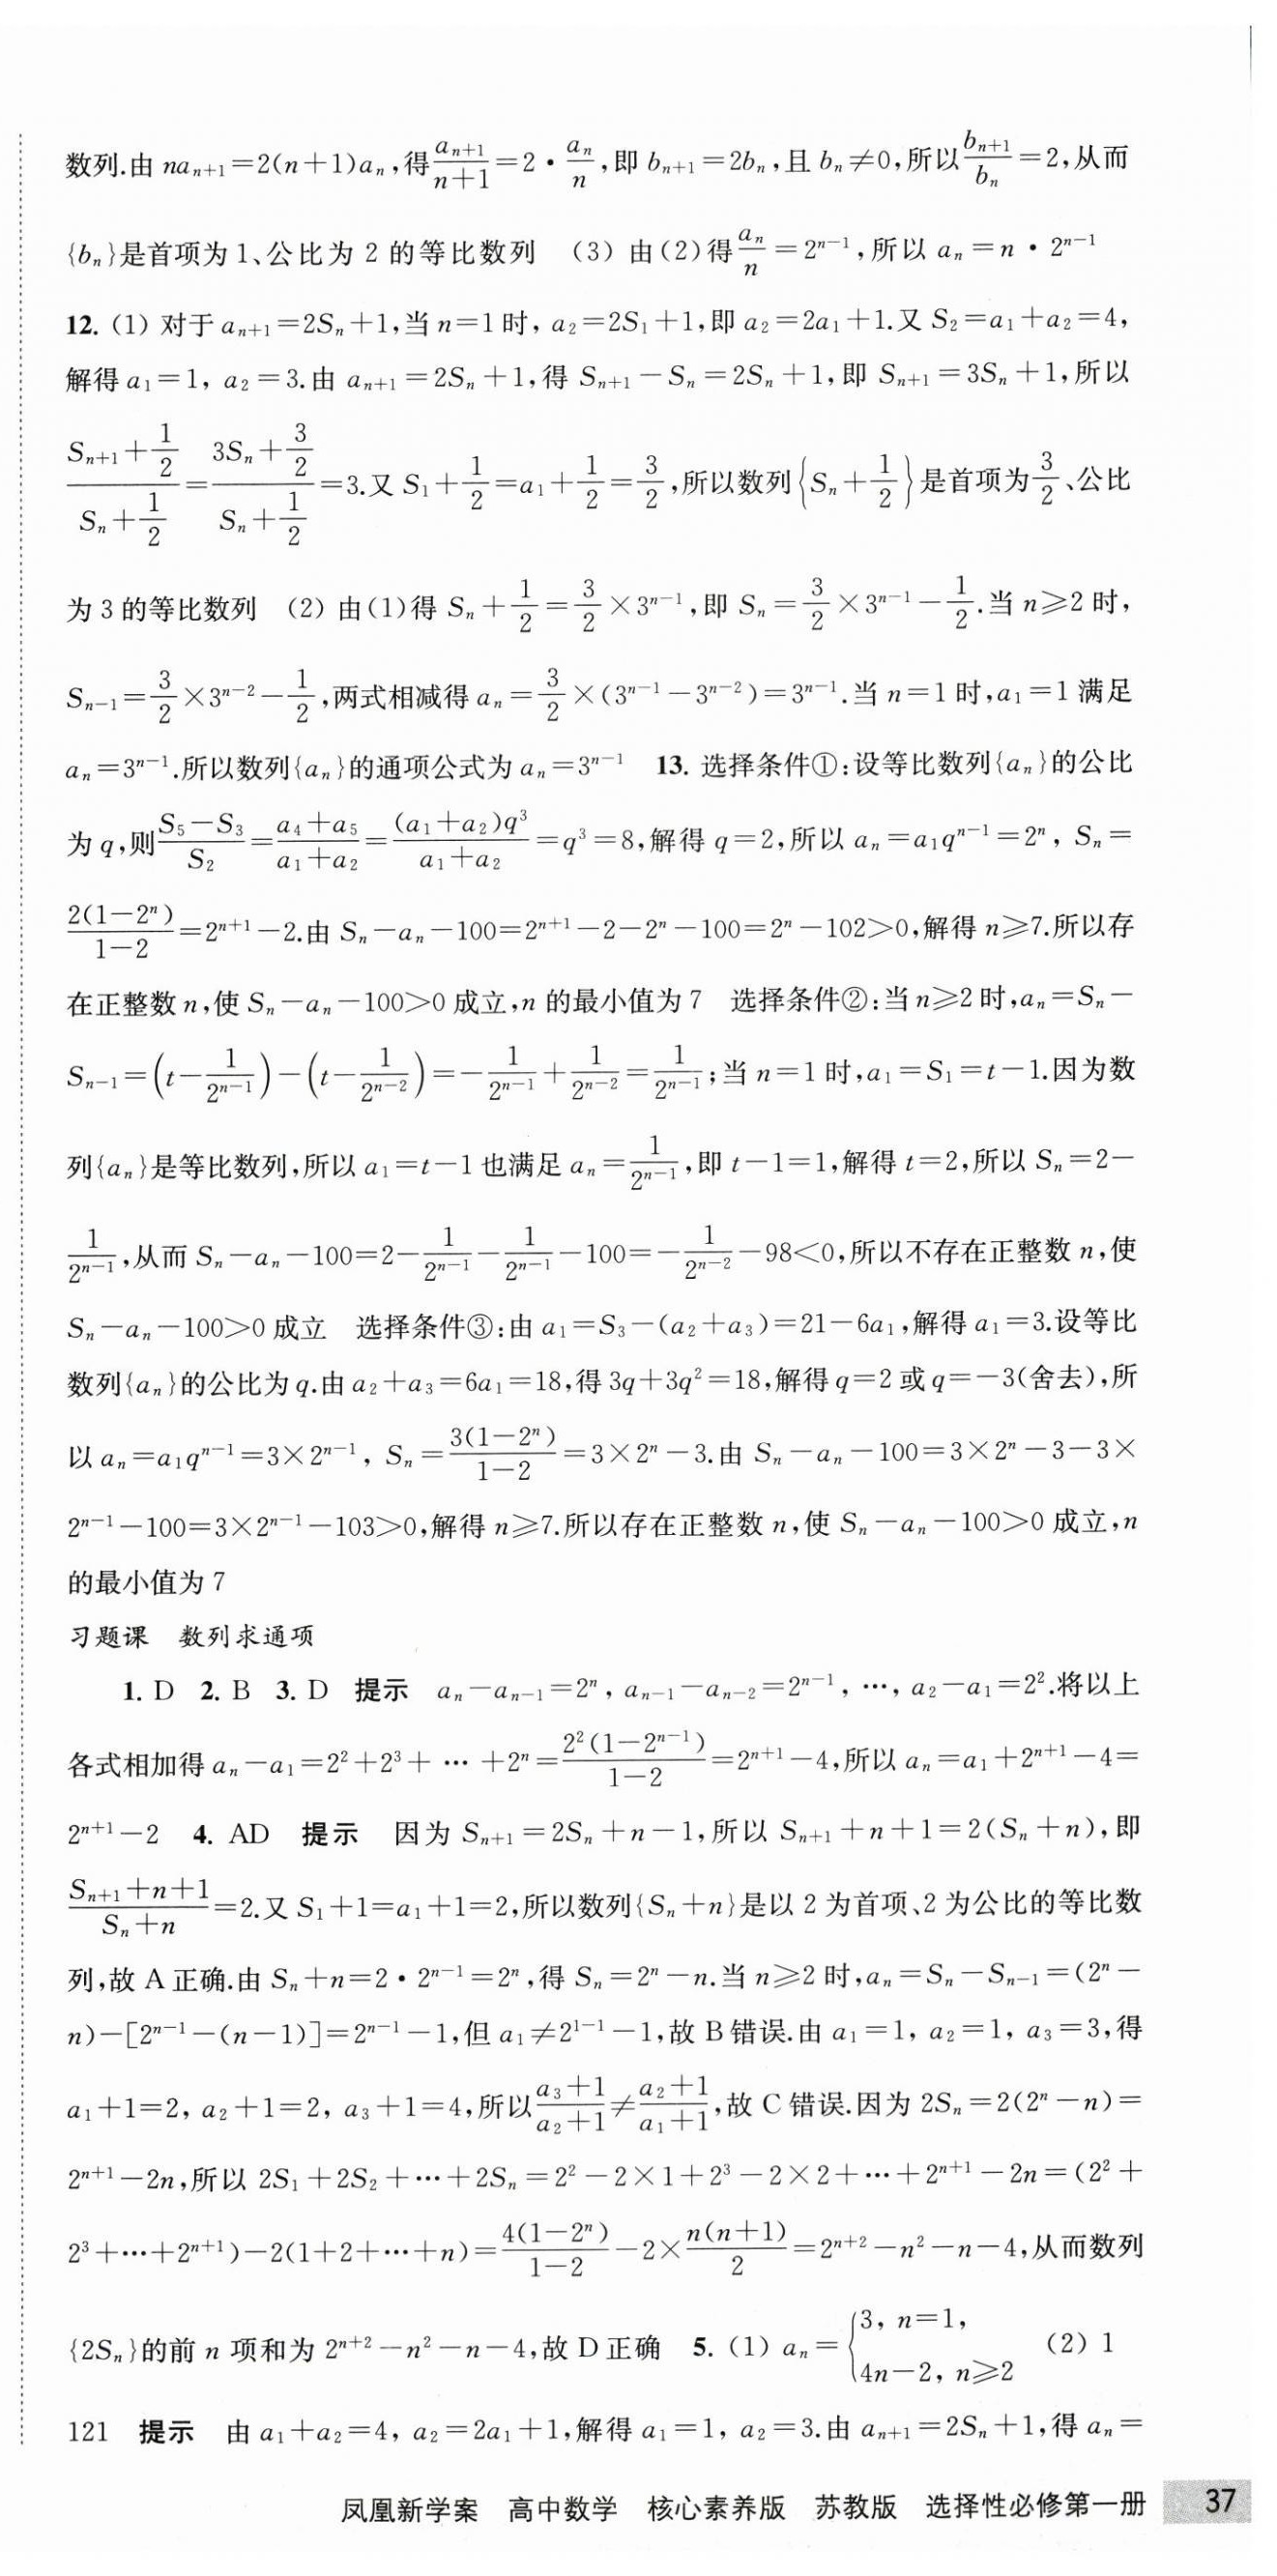 数列.由 naₙ₊₁=2(n+1)aₙ,得 aₙ₊₁/(n+1)=2·aₙ/n,即 bₙ₊₁=2bₙ,且 bₙ≠0,所以 bₙ₊₁/bₙ=2,从而
{bₙ}是首项为1、公比为 2 的等比数列 (3) 由(2)得 aₙ/n=2ⁿ⁻¹,所以 aₙ=n·2ⁿ⁻¹
12. (1) 对于 aₙ₊₁=2Sₙ+1,当 n=1 时, a₂=2S₁+1,即 a₂=2a₁+1.又 S₂=a₁+a₂=4,
解得 a₁=1, a₂=3.由 aₙ₊₁=2Sₙ+1,得 Sₙ₊₁-Sₙ=2Sₙ+1,即 Sₙ₊₁=3Sₙ+1,所以
(Sₙ₊₁+1/2)/(Sₙ+1/2)=(3Sₙ+3/2)/(Sₙ+1/2)=3.又 S₁+1/2=a₁+1/2=3/2,所以数列{Sₙ+1/2}是首项为3/2、公比
为 3 的等比数列 (2) 由(1)得 Sₙ+1/2=3/2×3ⁿ⁻¹,即 Sₙ=3/2×3ⁿ⁻¹-1/2.当 n≥2 时,
Sₙ₋₁=3/2×3ⁿ⁻²-1/2,两式相减得 aₙ=3/2×(3ⁿ⁻¹-3ⁿ⁻²)=3ⁿ⁻¹.当 n=1 时,a₁=1 满足
aₙ=3ⁿ⁻¹.所以数列{aₙ}的通项公式为 aₙ=3ⁿ⁻¹ 13. 选择条件①:设等比数列{aₙ}的公比
为 q,则 (S₅-S₃)/S₂=(a₄+a₅)/(a₁+a₂)=(a₁+a₂)q³/(a₁+a₂)=q³=8,解得 q=2,所以 aₙ=a₁qⁿ⁻¹=2ⁿ, Sₙ=
2(1-2ⁿ)/(1-2)=2ⁿ⁺¹-2.由 Sₙ-aₙ-100=2ⁿ⁺¹-2-2ⁿ-100=2ⁿ-102>0,解得 n≥7.所以存
在正整数 n,使 Sₙ-aₙ-100>0 成立,n 的最小值为 7 选择条件②:当 n≥2 时,aₙ=Sₙ-
Sₙ₋₁=(t-1/2ⁿ⁻¹)-(t-1/2ⁿ⁻²)=-1/2ⁿ⁻¹+1/2ⁿ⁻²=1/2ⁿ⁻¹;当 n=1 时,a₁=S₁=t-1.因为数
列{aₙ}是等比数列,所以 a₁=t-1 也满足 aₙ=1/2ⁿ⁻¹,即 t-1=1,解得 t=2,所以 Sₙ=2-
1/2ⁿ⁻¹,从而 Sₙ-aₙ-100=2-1/2ⁿ⁻¹-1/2ⁿ⁻¹-100=-1/2ⁿ⁻²-98<0,所以不存在正整数 n,使
Sₙ-aₙ-100>0 成立 选择条件③:由 a₁=S₃-(a₂+a₃)=21-6a₁,解得 a₁=3.设等比
数列{aₙ}的公比为 q.由 a₂+a₃=6a₁=18,得 3q+3q²=18,解得 q=2 或 q=-3(舍去),所
以 aₙ=a₁qⁿ⁻¹=3×2ⁿ⁻¹, Sₙ=3(1-2ⁿ)/(1-2)=3×2ⁿ-3.由 Sₙ-aₙ-100=3×2ⁿ-3-3×
2ⁿ⁻¹-100=3×2ⁿ⁻¹-103>0,解得 n≥7.所以存在正整数 n,使 Sₙ-aₙ-100>0 成立,n
的最小值为 7
习题课 数列求通项
1. D 2. B 3. D 提示 aₙ-aₙ₋₁=2ⁿ, aₙ₋₁-aₙ₋₂=2ⁿ⁻¹, …, a₂-a₁=2².将以上
各式相加得 aₙ-a₁=2²+2³+ … +2ⁿ=2²(1-2ⁿ⁻¹)/(1-2)=2ⁿ⁺¹-4,所以 aₙ=a₁+2ⁿ⁺¹-4=
2ⁿ⁺¹-2 4. AD 提示 因为 Sₙ₊₁=2Sₙ+n-1,所以 Sₙ₊₁+n+1=2(Sₙ+n),即
(Sₙ₊₁+n+1)/(Sₙ+n)=2.又 S₁+1=a₁+1=2,所以数列{Sₙ+n}是以 2 为首项、2 为公比的等比数
列,故 A 正确.由 Sₙ+n=2·2ⁿ⁻¹=2ⁿ,得 Sₙ=2ⁿ-n.当 n≥2 时,aₙ=Sₙ-Sₙ₋₁=(2ⁿ-
n)-[2ⁿ⁻¹-(n-1)]=2ⁿ⁻¹-1,但 a₁≠2¹⁻¹-1,故 B 错误.由 a₁=1, a₂=1, a₃=3,得
a₁+1=2, a₂+1=2, a₃+1=4,所以(a₃+1)/(a₂+1)≠(a₂+1)/(a₁+1),故 C 错误.因为 2Sₙ=2(2ⁿ-n)=
2ⁿ⁺¹-2n,所以 2S₁+2S₂+…+2Sₙ=2²-2×1+2³-2×2+…+2ⁿ⁺¹-2n=(2²+
2³+…+2ⁿ⁺¹)-2(1+2+…+n)=4(1-2ⁿ)/(1-2)-2×n(n+1)/2=2ⁿ⁺²-n²-n-4,从而数列
{2Sₙ}的前 n 项和为 2ⁿ⁺²-n²-n-4,故 D 正确 5. (1) aₙ={3, n=1, 4n-2, n≥2 (2) 1
121 提示 由 a₁+a₂=4, a₂=2a₁+1,解得 a₁=1, a₂=3.由 aₙ₊₁=2Sₙ+1,得 aₙ=
凤凰新学案 高中数学 核心素养版 苏教版 选择性必修第一册 37